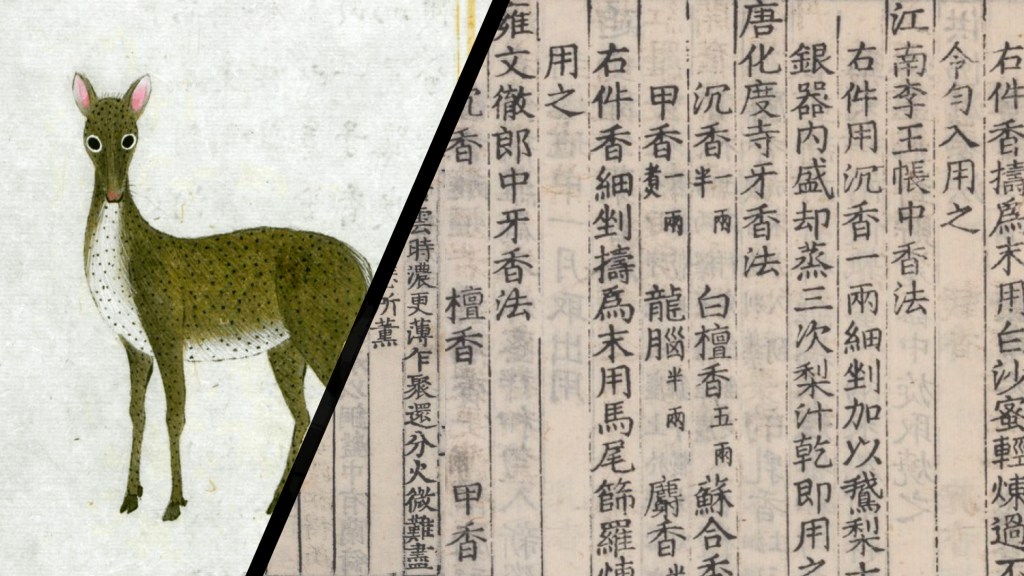 右件香擣爲末用白沙蜜輕煉過不
令匀入用之
江南李王帳中香法
右件用沉香一兩細剉加以鵞梨
銀器内盛却蒸三次梨汁乾即用之
唐化度寺牙香法
沉香一兩半 白檀香五兩 蘇合香
甲香一兩煮 龍腦半兩 麝香半
右件香細剉擣爲末用馬尾篩羅煉
用之
雍文徹郎中牙香法
沉香 檀香 甲香
雲時濃更薄乍聚還分火微難盡
所薰